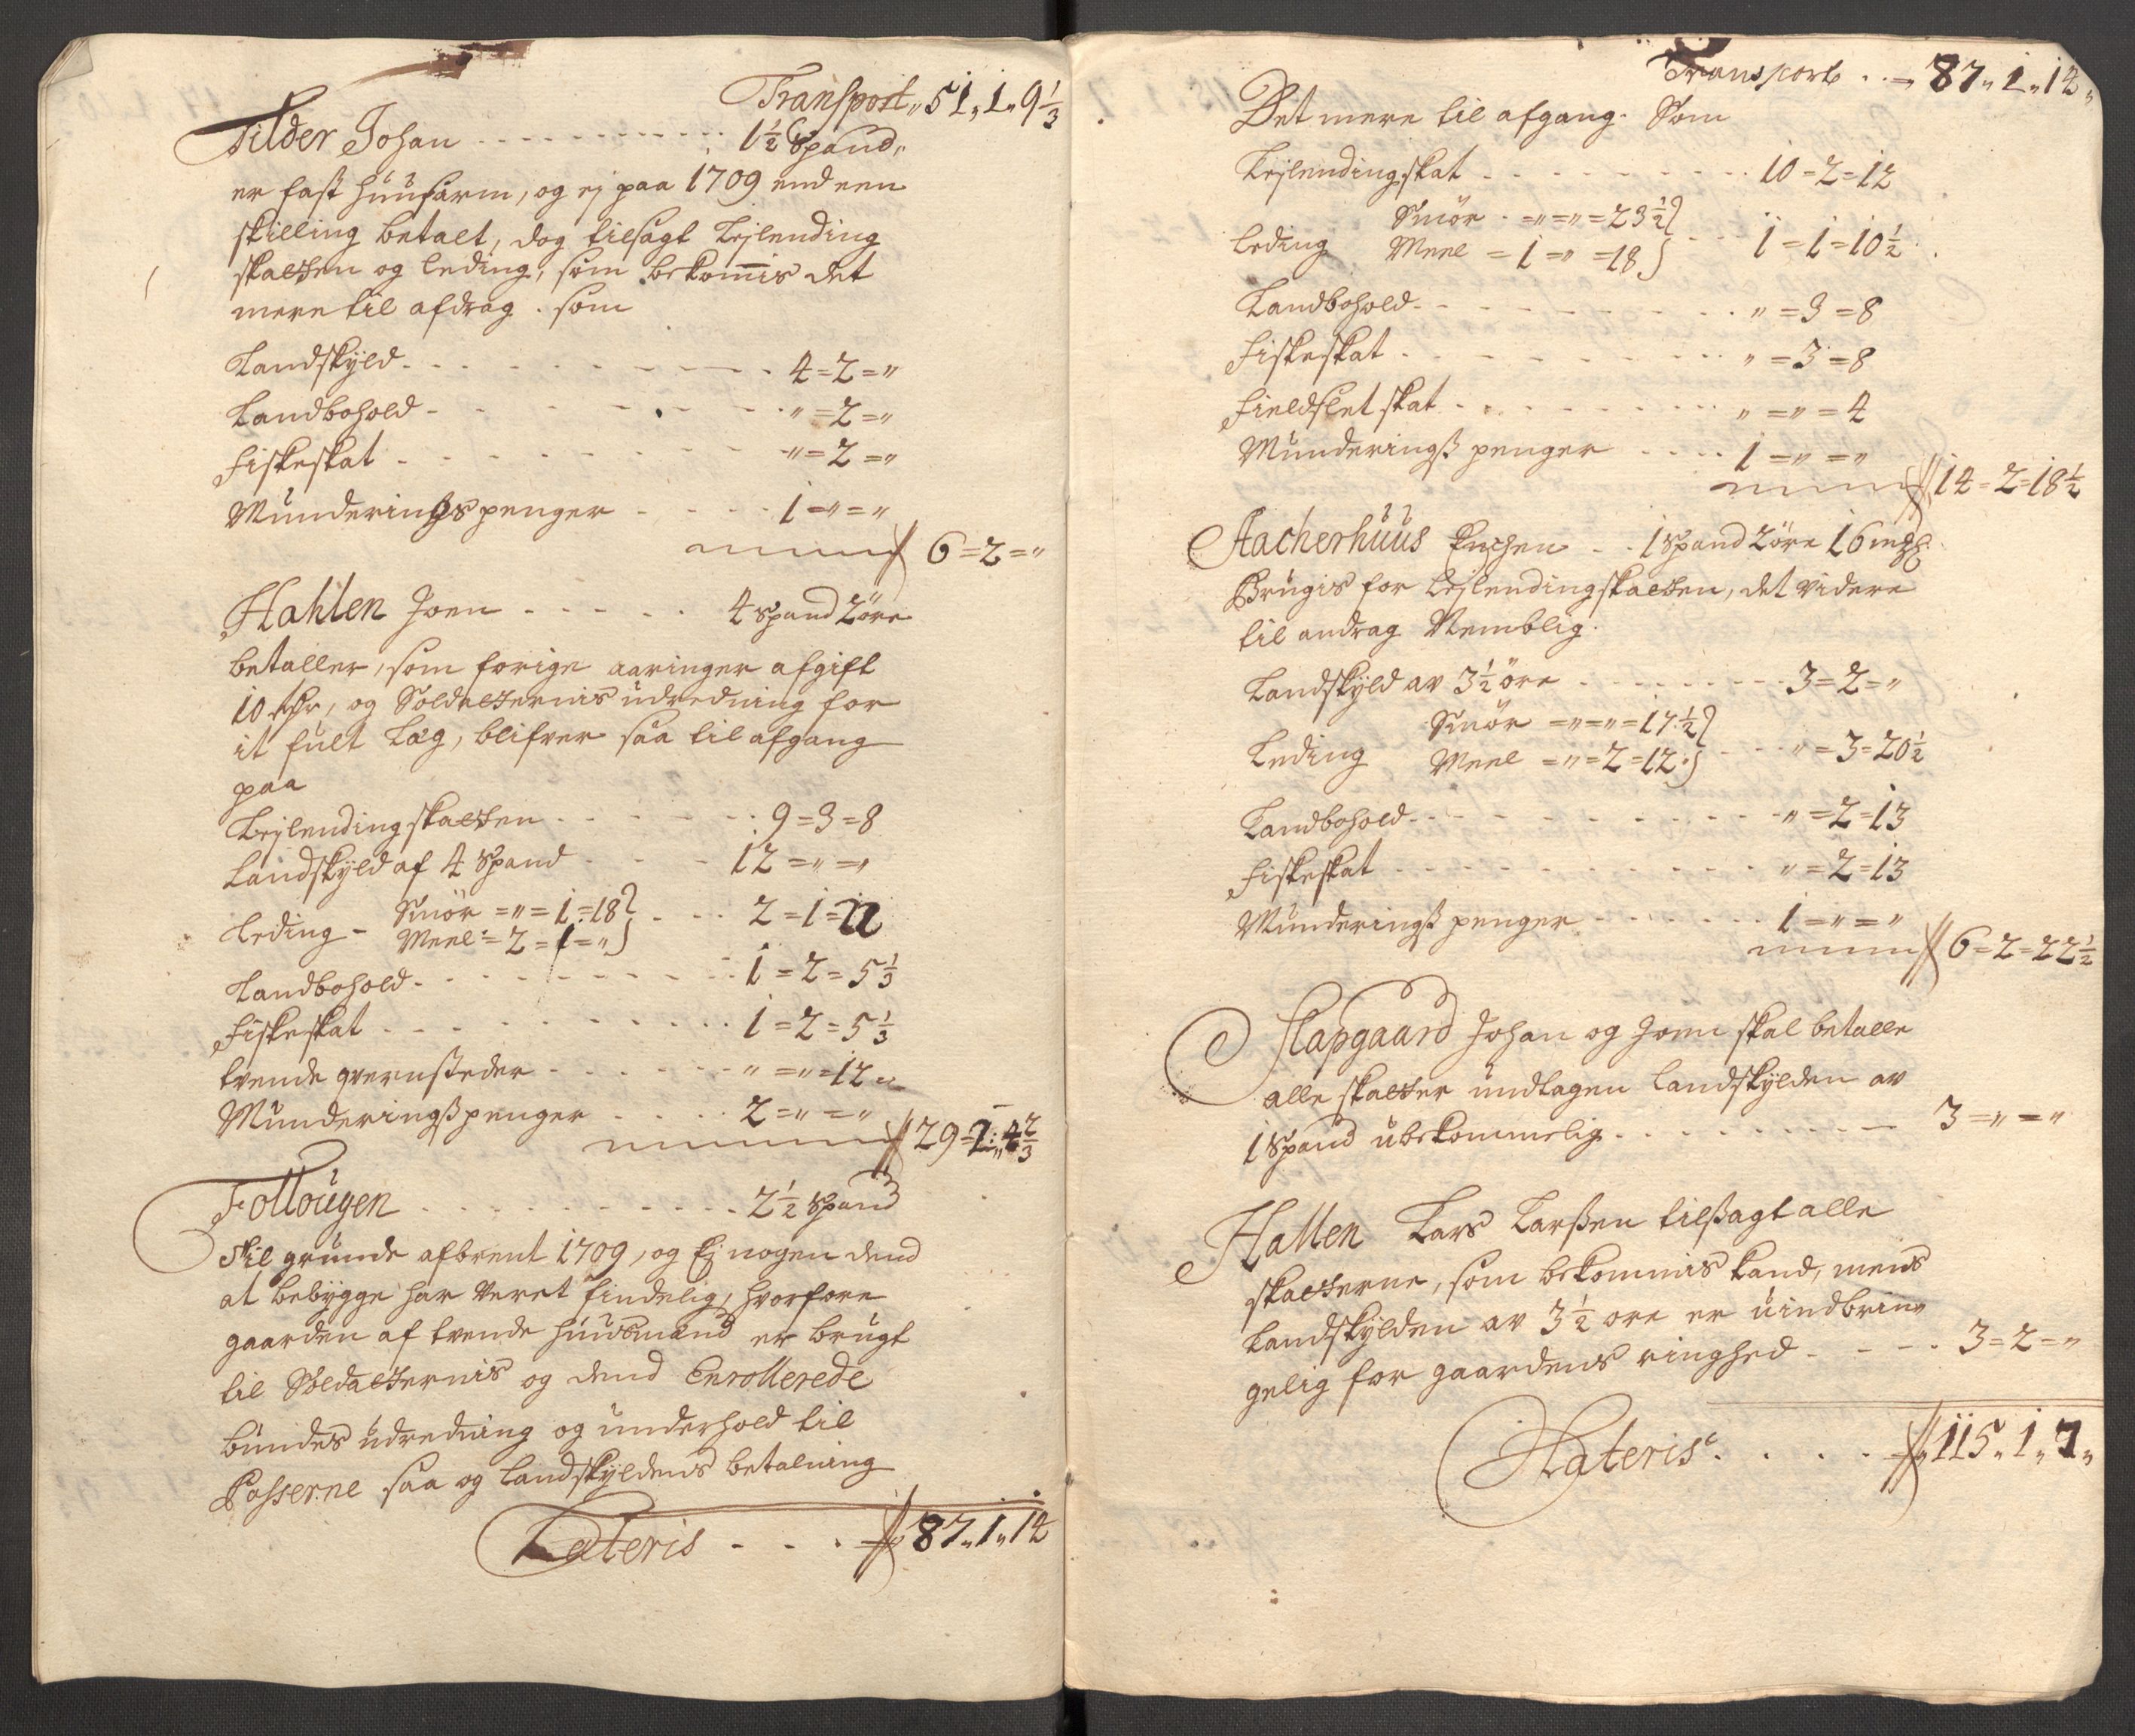 Transport „ 51 „ 1 „ 9 1/3
Tilder Johan - - - - - - - - - 1 1/2 Spand „
er fast huusarm, og ej paa 1709 end een
skilling betalt, dog tilsagt Leylending
skatten og leding, som bekomis det
mere til afdrag. som
Landskyld - - - - - - - - 4 = 2 = „
Landbohold - - - - - - - - „ = 2 = „
Fiskeskat - - - - - - - - „ = 2 = „
Munderings penger - - - - 1 = „ = „
6 = 2 = „
Hahlen Joen - - - - - 4 Spand 2 öre
betaller, som forige aaringer afgift
10 rdr, og Soldatternis udredning for
it fult Læg, blifver saa til afgang
paa
Leylending skatten - - - - - - 9 = 3 = 8
Landskyld af 4 Spand - - - 12 = „ = „
Smör = „ = 1 = 18
Leding - - - - 2 = 1 = 22
Meel = 2 = 1 = „
Landbohold - - - - - - - - 1 = 2 = 5 1/3
Fiskeskat - - - - - - - - - 1 = 2 = 5 1/3
tvende qvernsteder - - - - - - „ = „ = 12 „
Munderingsspenger - - - - 2 = „ = „
29 = 1 = 4 2/3
Follougen - - - - - - - - - 2 1/2 Spand
til grunde afbrent 1709, og Ej nogen dend
at bebygge har veret findelig, hvorfore
gaarden af tvende huusmænd er brugt
til Soldatternis og dend Enrollerede
bundes udredning og underhold til
Posserne saa og landskyldens betalning
Lateris - - . 87 „ 1 „ 14
Transport . . 87 „ 1 „ 14 „
Det mere til afgang. Som
Leylendingskat - - - - - - - - - 10 = 2 = 12
Smör - = „ = „ = 23 1/2
Leding - - - 1 = 1 = 10 1/2
Meel = 1 = „ = 18
Landbohold - - - - - - - - - „ = 3 = 8
Fiskeskat - - - - - - - - - „ = 3 = 8
Fieldslet skat - - - - - - - - „ = „ = 4
Munderingss penger - - - - 1 = „ = „
14 = 2 = 18 1/2
Aacherhuus Enchen - - 1 Spand 2 öre 16 mkl
Brugis for Leylendingskatten, det videre
til andrag Nemblig.
Landskyld av 3 1/2 öre - - - - - - - - 3 = 2 = „
Smör = „ = „ = 17 1/2
Leding - - - „ = 3 = 20 1/2
Meel = „ = 2 = 12
Landbohold - - - - - - - - - - - „ = 2 = 13
Fiskeskat - - - - - - - - - - - „ = 2 = 13
Munderingss penger - - - - - - 1 = „ = „
6 = 2 = 22 1/2
Slapgaard Johan og Joen skal betalle
alle skatter undtagen landskylden av
1 Spand ubekommelig - - - - - - - - - 3 = „ = „
Hallen Lars Larssen tilssagt alle
skatterne, som bekommis kand, mens
Landskylden av 3 1/2 ore er uindbrin=
gelig for gaardens ringhed - - - - 3 = 2 = „
Lateris . . . . 115 „ 1 „ 7 „